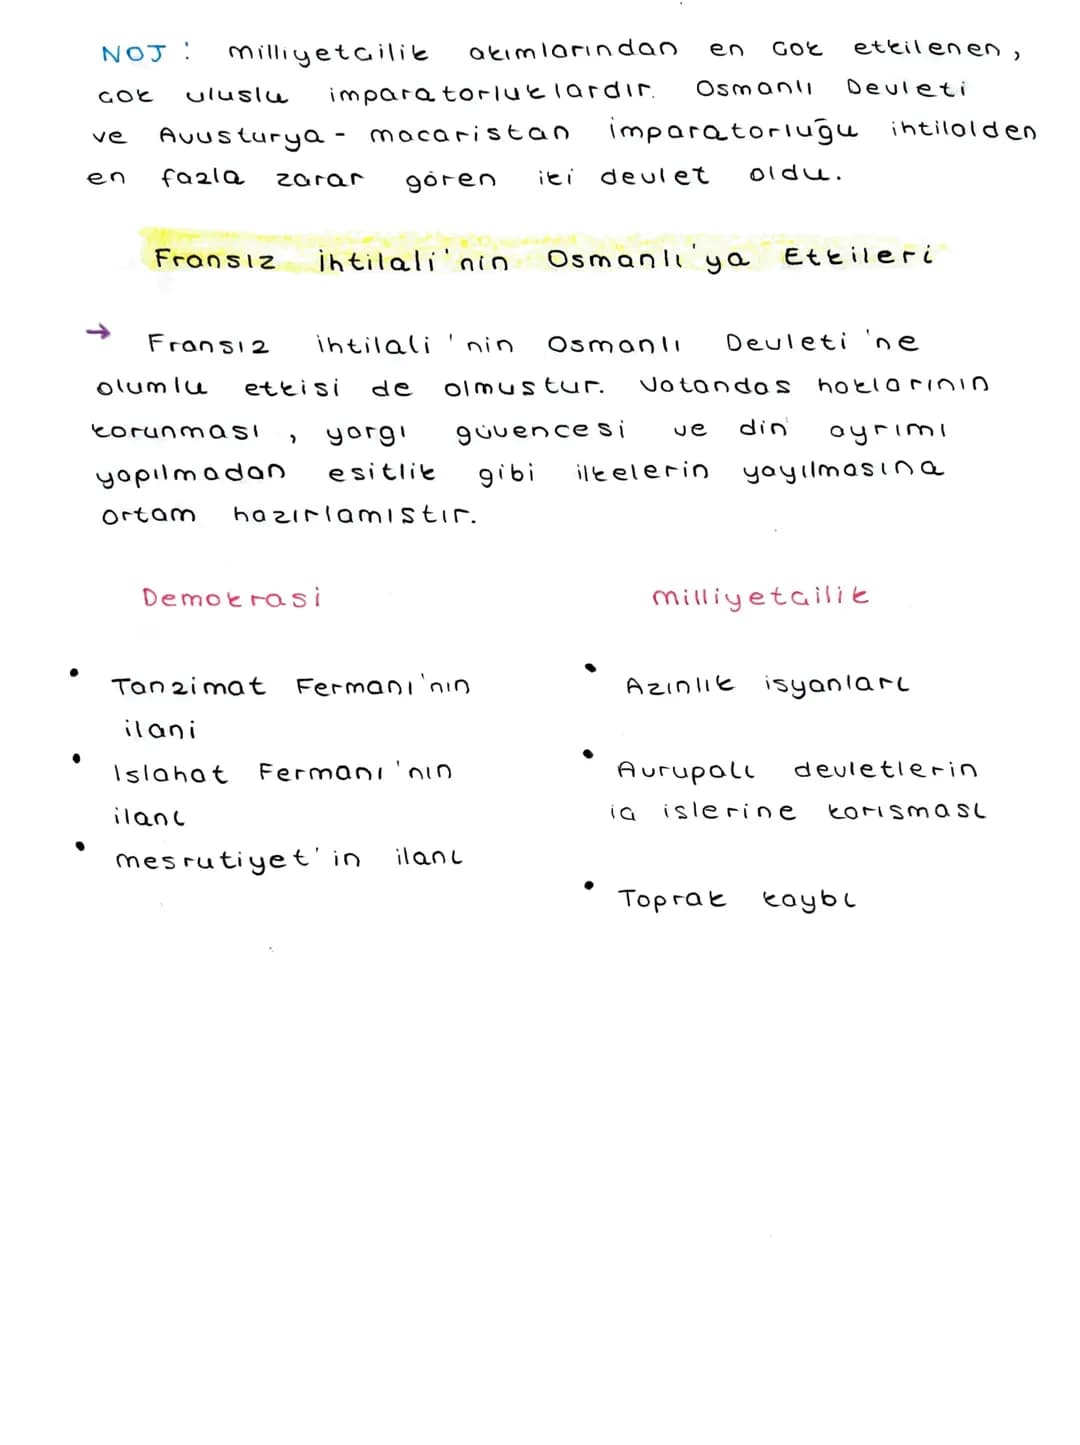 NOT : milliyetcilik akımlarından en cok etkilenen,
cok uluslu imparatorluklardır. Osmanlı Devleti
ve Avusturya - macaristan imparatorluğu ihtilalden
en fazla zarar gören iki devlet oldu.
Fransız ihtilali'nin Osmanlı'ya Etkileri
→ Fransız ihtilali'nin Osmanlı Devleti'ne
olumlu etkisi de olmustur. Vatandas haklarının
korunması, yargı güvencesi ve din ayrımı
yapılmadan esitlik gibi ilkelerin yayılmasına
ortam hazırlamıstır.
Demokrasi
• Tanzimat Fermanı'nın
ilani
• Islahat Fermanı'nın
ilanı
• mesrutiyet'in ilanı
milliyetcilik
• Azınlık isyanları
• Avrupalı devletlerin
ic islerine karısması
• Toprak kaybı